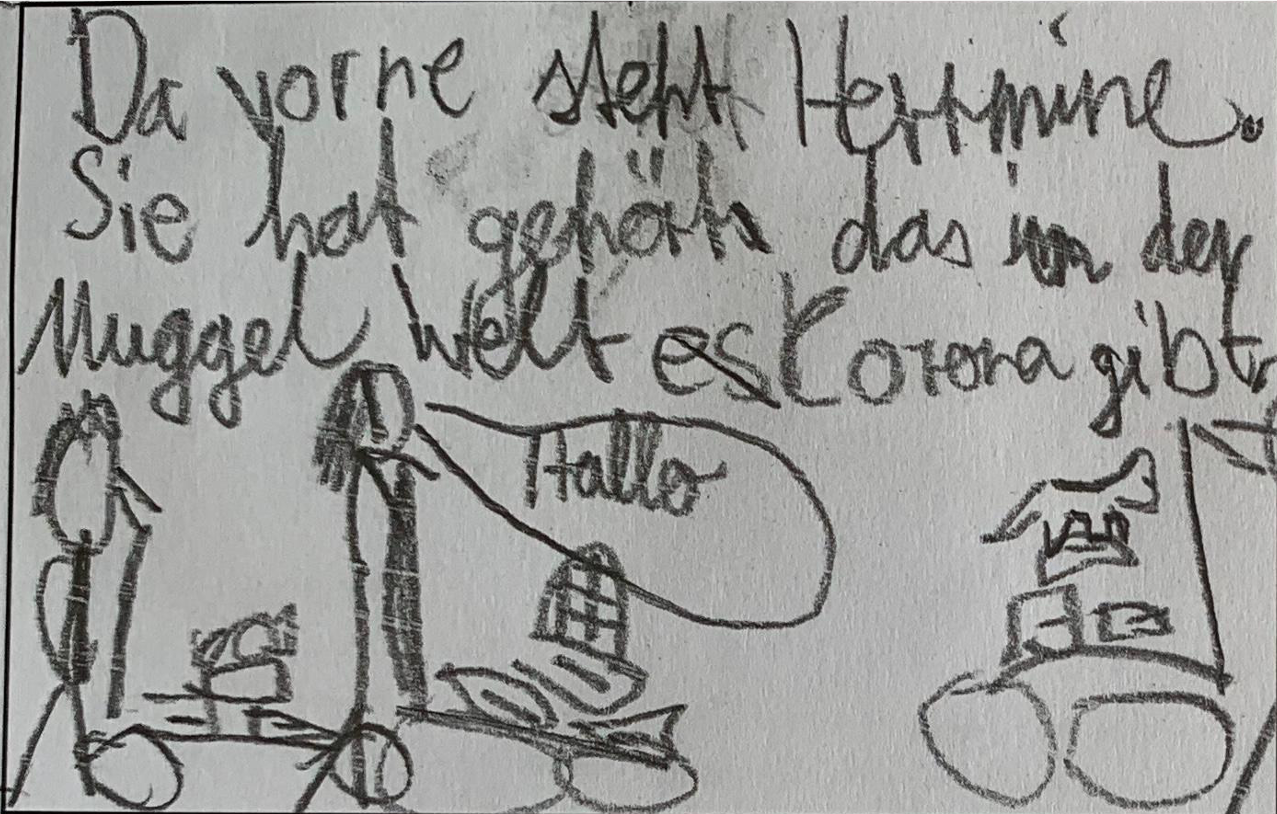 Da vorne steht Hermine.
Sie hat gehört das in der
Muggel welt es Corona gibt
Hallo